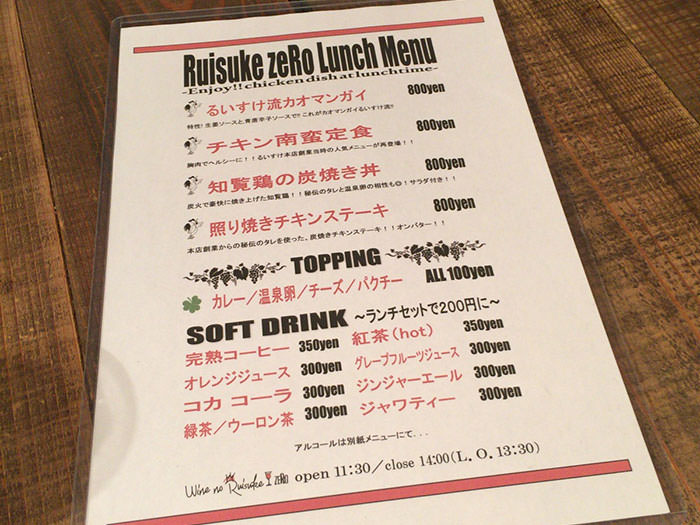 Ruisuke zeRo Lunch Menu
-Enjoy!! chicken dish at lunchtime-
るいすけ流カオマンガイ 800yen
特性!生姜ソースと青唐辛子ソースで!!これがカオマンガイるいすけ流!!
チキン南蛮定食 800yen
胸肉でヘルシーに!!るいすけ本店創業当時の人気メニューが再登場!!
知覧鶏の炭焼き丼 800yen
炭火で豪快に焼き上げた知覧鶏!!秘伝のタレと温泉卵の相性も◎!サラダ付き!!
照り焼きチキンステーキ 800yen
本店創業からの秘伝のタレを使った、炭焼きチキンステーキ!!オンバター!!
TOPPING
カレー/温泉卵/チーズ/パクチー ALL 100yen
SOFT DRINK ~ランチセットで200円に~
完熟コーヒー 350yen 紅茶(hot) 350yen
オレンジジュース 300yen グレープフルーツジュース 300yen
コカ コーラ 300yen ジンジャーエール 300yen
緑茶/ウーロン茶 300yen ジャワティー 300yen
アルコールは別紙メニューにて...
Wine no Ruisuke ZeRo open 11:30/close 14:00(L.O.13:30)